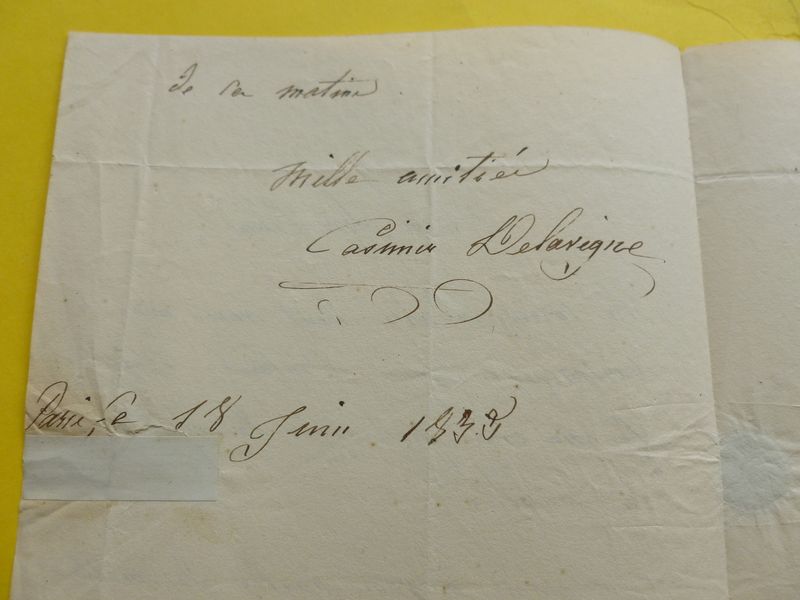 de la matinée
mille amitiés
Casimir Delavigne
Paris, le 18 Juin 1833